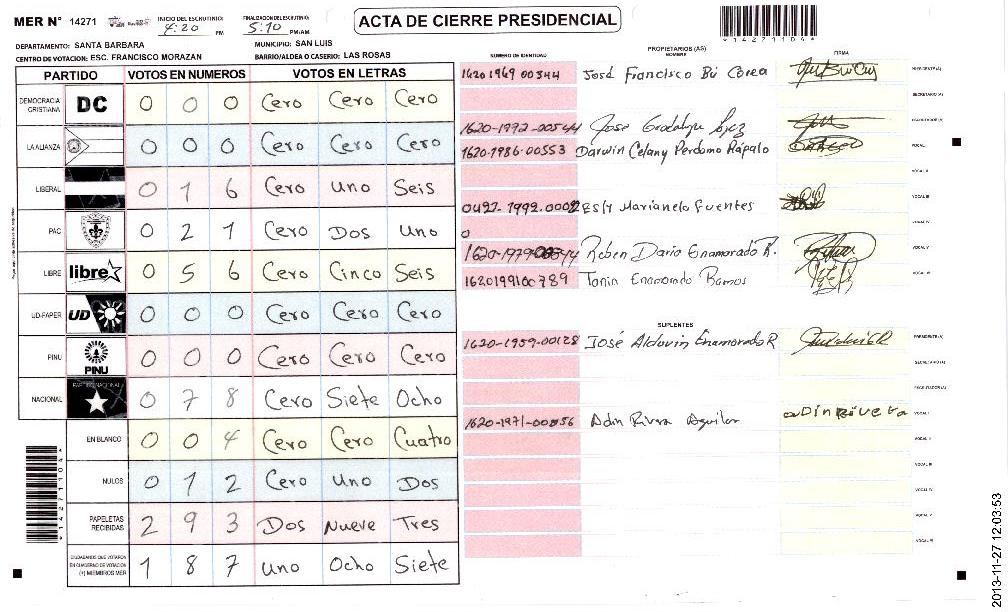 MER N° 14271 INICIO DEL ESCRUTINIO: 4:20 PM FINALIZACION DEL ESCRUTINIO: 5:10 PM/AM
ACTA DE CIERRE PRESIDENCIAL
*14271104*
DEPARTAMENTO: SANTA BARBARA MUNICIPIO: SAN LUIS
CENTRO DE VOTACION: ESC. FRANCISCO MORAZAN BARRIO/ALDEA O CASERIO: LAS ROSAS
PARTIDO VOTOS EN NUMEROS VOTOS EN LETRAS
DEMOCRACIA CRISTIANA DC 0 0 0 Cero Cero Cero
LA ALIANZA 0 0 0 Cero Cero Cero
LIBERAL 0 1 6 Cero Uno Seis
PAC 0 2 1 Cero Dos Uno
LIBRE libre 0 5 6 Cero Cinco Seis
UD-FAPER UD 0 0 0 Cero Cero Cero
PINU PINU 0 0 0 Cero Cero Cero
NACIONAL PARTIDO NACIONAL 0 7 8 Cero Siete Ocho
EN BLANCO 0 0 4 Cero Cero Cuatro
NULOS 0 1 2 Cero Uno Dos
PAPELETAS RECIBIDAS 2 9 3 Dos Nueve Tres
CIUDADANOS QUE VOTARON EN CUADERNO DE VOTACION (+) MIEMBROS MER 1 8 7 Uno Ocho Siete
*14271104*
PROPIETARIOS (AS)
NUMERO DE IDENTIDAD NOMBRE FIRMA
1620 1969 00344 José Francisco Bú Corea PRESIDENTE(A)
SECRETARIO(A)
1620-1992-00544 Jose ESCRUTADOR(A)
1620-1986-00553 Darwin Celany Perdomo Rápalo VOCAL I
VOCAL II
Marianela Fuentes VOCAL III
VOCAL IV
Ruben Dario Enamorado R. VOCAL V
1620199100789 Tania Enamorado Ramos VOCAL VI
SUPLENTES
1620-1959-00128 José Aldovin Enamorado R PRESIDENTE(A)
SECRETARIO(A)
ESCRUTADOR(A)
Adin Rivera Aguilar adin Rivera VOCAL I
VOCAL II
VOCAL III
VOCAL IV
VOCAL V
VOCAL VI
2013-11-27 12:03:53